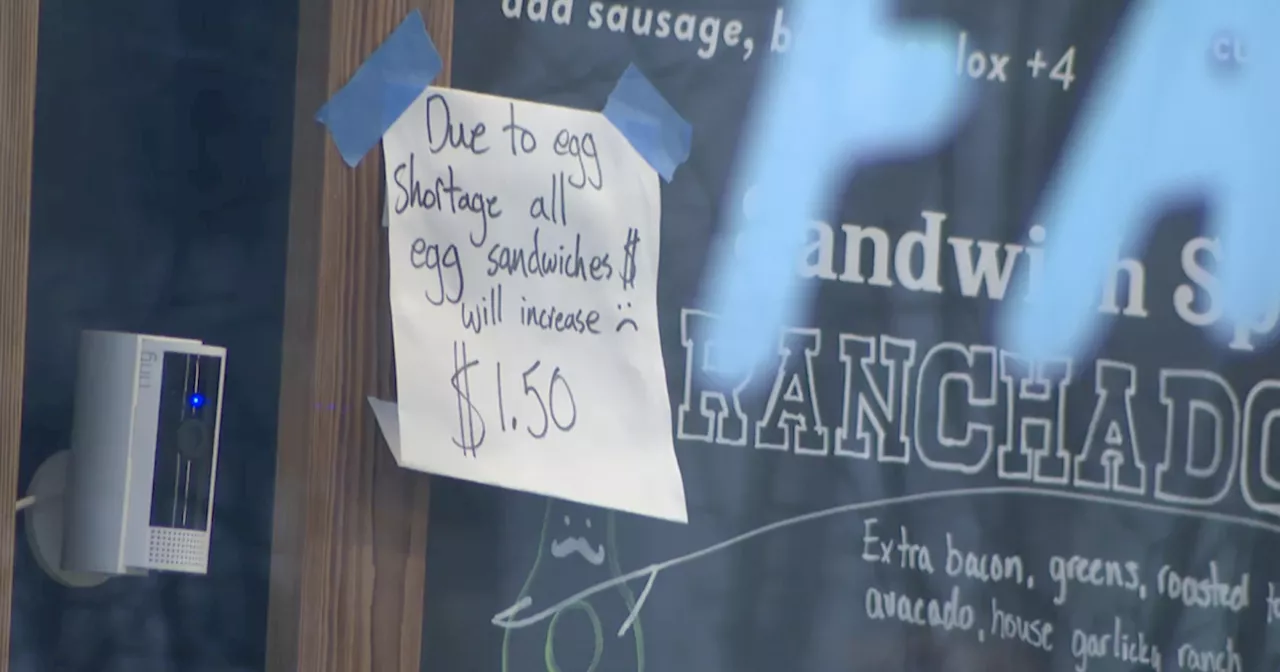 add sausage, lox +4
Due to egg
Shortage all
egg sandwiches $
will increase :(
$1.50
Sandwich
RANCHADO
Extra bacon, greens, roasted
avacado, house garlicky ranch
ring